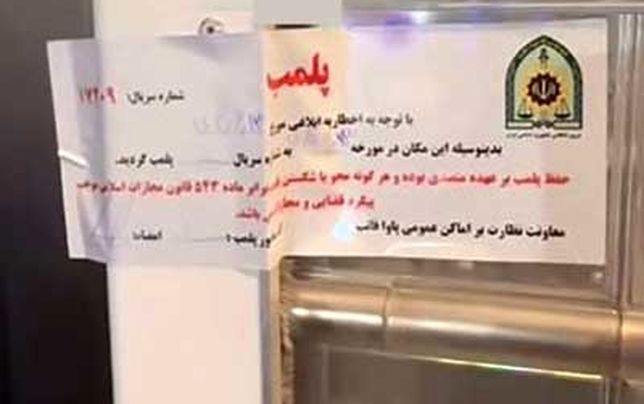 پلمب
شماره سریال: ۱۷۲۰۹
با توجه به اخطاریه ابلاغی مورخ
بدینوسیله این مکان در مورخه به شماره سریال پلمب گردید.
حفظ پلمب بر عهده متصدی بوده و هر گونه محو یا شکستن برابر ماده ۵۴۳ قانون مجازات اسلامی موجب
پیگرد قضایی و می باشد.
معاونت نظارت بر اماکن عمومی پاوا فاتب پلمب: امضاء: